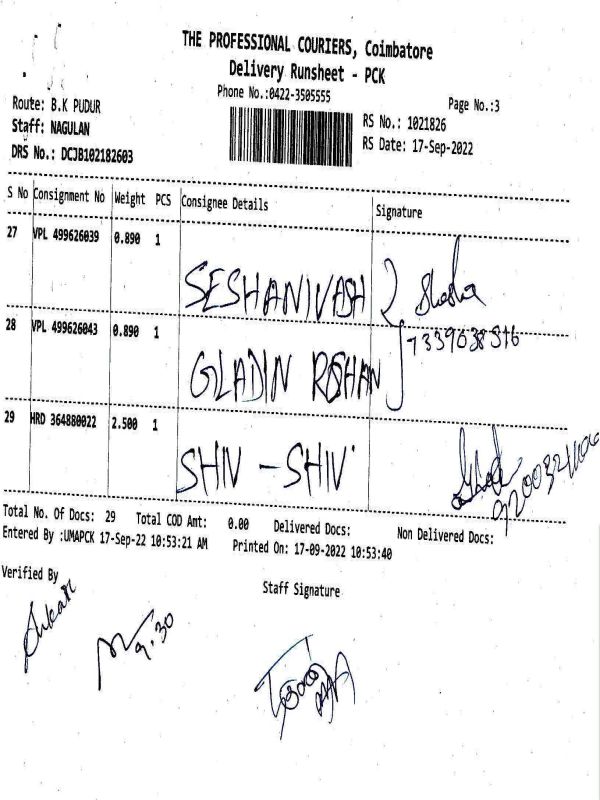 THE PROFESSIONAL COURIERS, Coimbatore
Delivery Runsheet - PCK
Phone No.:0422-3505555
Page No.:3
Route: B.K PUDUR
Staff: NAGULAN
DRS No.: DCJB102182603
RS No.: 1021826
RS Date: 17-Sep-2022
S No Consignment No Weight PCS Consignee Details Signature
27 VPL 499626039 0.890 1
SESHANIVASH
28 VPL 499626043 0.890 1
GLADIN ROSHAN
29 HRD 364880022 2.500 1
SHIV - SHIV
Total No. Of Docs: 29 Total COD Amt: 0.00 Delivered Docs: Non Delivered Docs:
Entered By :UMAPCK 17-Sep-22 10:53:21 AM Printed On: 17-09-2022 10:53:40
Verified By
Staff Signature
9.30